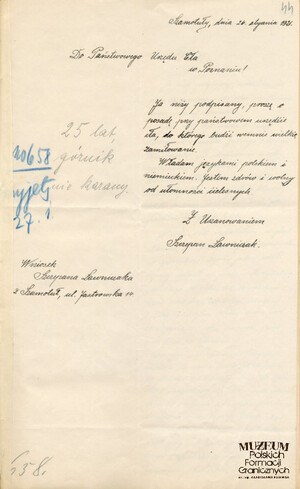 44
Szamotuły, dnia 24 stycznia 1921.
Do Państwowego Urzędu Cła
w Poznaniu!
Ja niży podpisany, proszę o
posadę przy państwowem urzędzie
cła, do którego budzi wemnie wielkie
zamiłowanie.
Władam językami polskiem i
niemieckiem. Jestem zdrów i wolny
od ułomności cielesnych.
Z Uszanowaniem
Szczepan Ławniczak.
25 lat
górnik
nie karany.
658
27. 1.
Wniosek
Szczepana Ławniczaka
z Szamotuł, ul. Jastrowska
658.
MUZEUM
Polskich
Formacji
Granicznych